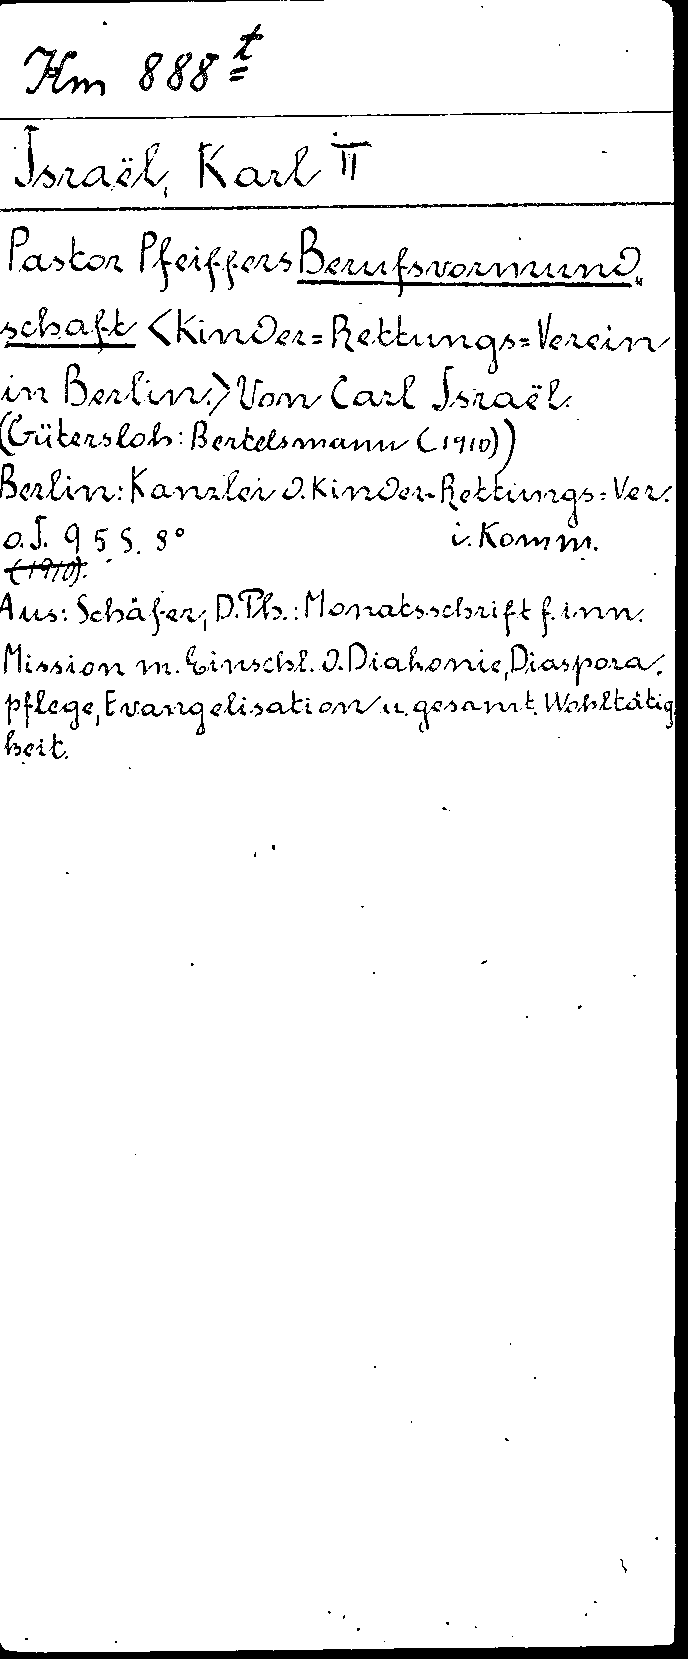 Hm 888 t
Israël, Karl II
Pastor Pfeiffers Berufsvormund-
schaft <Kinder=Rettungs=Verein
in Berlin.> Von Carl Israël.
(Gütersloh: Bertelsmann (1910))
Berlin: Kanzlei d. Kinder-Rettungs=Ver.
o.J. 95 S. 8° i. Komm.
(1910).
Aus: Schäfer, D. Th.: Monatsschrift f. inn.
Mission m. Einschl. d. Diakonie, Diaspora-
pflege, Evangelisation u. gesamt. Wohltätig
keit.